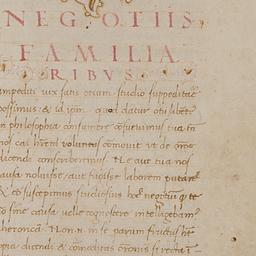 NEGOTIIS
FAMILIA
RIBVS
impediti vix satis otium studio suppeditare
possimus: & id ipm quod datur otii libenti
in philosophia consumere consuevimus tua tn
nos cai herenni voluntas comovit ut de rone
dicendi conscriberemus. Ne aut tua nos
causa noluisse, aut fugisse laborem putares
& eo studiosius hoc negotium
sine causa velle cognoscere intelligebam
rhetoricā. Non n. in se parum fructus ht
copia dicendi & comoditas oronis si recta i